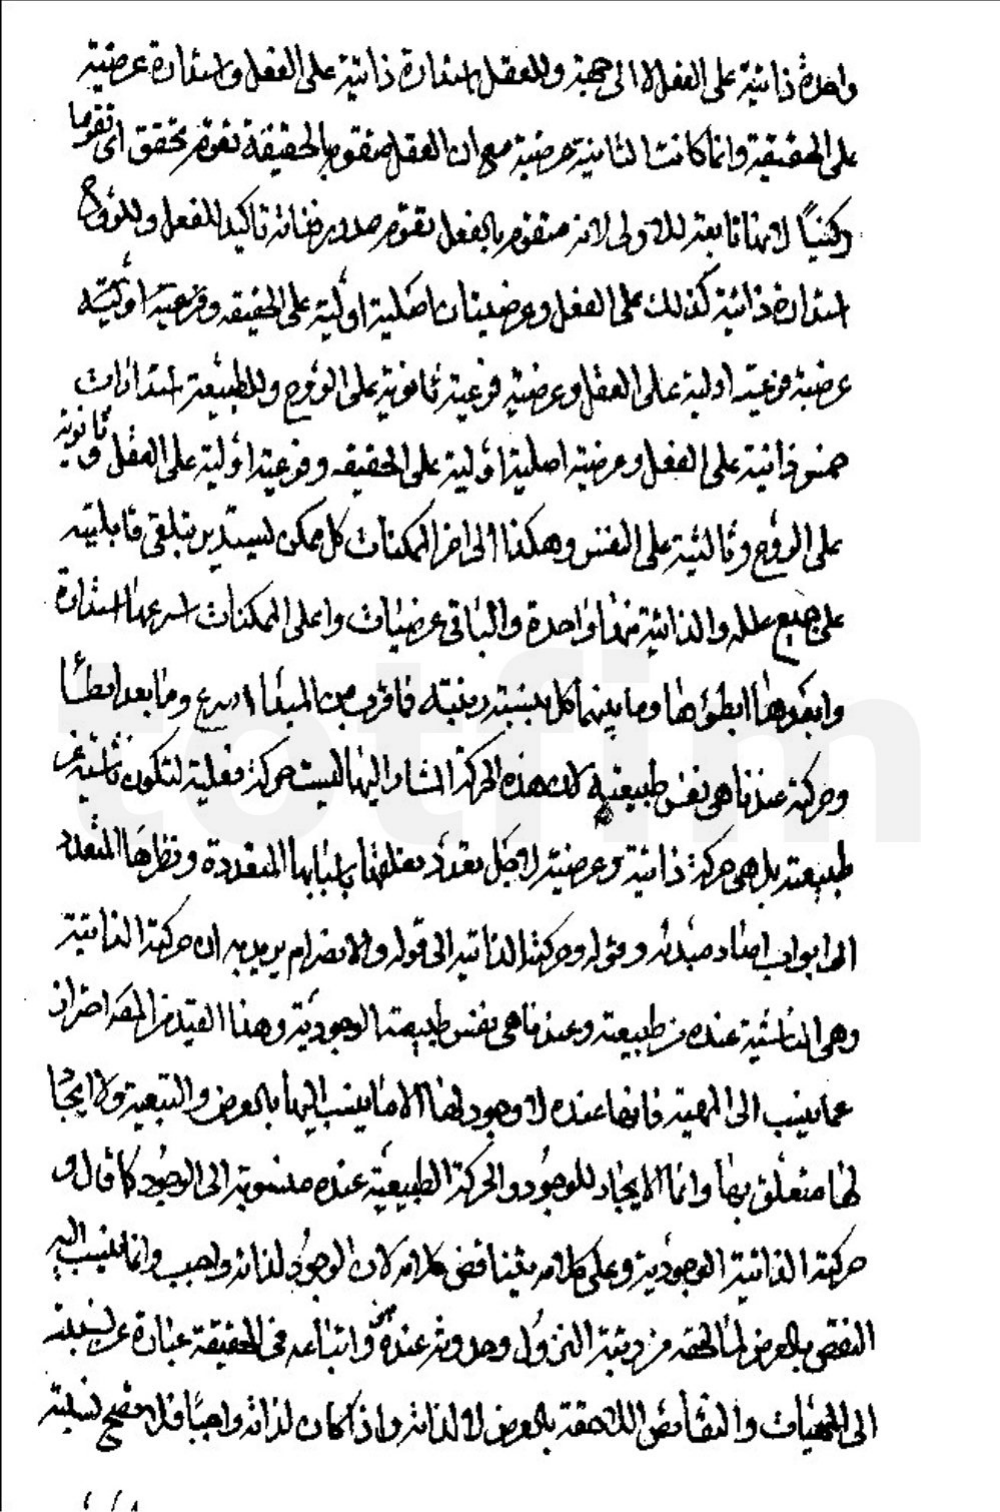 واحدة ذاتية على الفعل لا الى جهة وللعقل استدارة ذاتية على الفعل واستدارة عرضية
على الحقيقة وانما كانت الثانية عرضية مع ان العقل متقوم بالحقيقة تقوم تحقق اى تقوما
ركنيًا لانها تابعة للاولى لانه متقوم بالفعل تقوم صدور فذاته تاكيد للفعل وللروح
استدارة ذاتية كذلك على الفعل وعرضيتان اصلية اولية على الحقيقه وفرعية اولية
عرضية فرعية اولية على العقل وعرضية فرعية ثانوية على الروح وللطبيعة استدارات
خمس ذاتية على الفعل وعرضية اصلية اولية على الحقيقه وفرعية اولية على العقل وثانوية
على الروح وثالثية على النفس وهكذا الى اخر الممكنات كل ممكن يستدير بتلقى قابليته
على جميع علله والذاتية منها واحدة والباقى عرضيات واعلى الممكنات اسرعها استدارة
وابعدها ابطؤها وما بينهما كل بنسبة رتبته فما قرب من المبدأ اسرع وما بعد ابطأ
وحركته عندنا هى نفس طبيعته لان هذه الحركة المشار اليها ليست حركة فعلية لتكون ناشئة عن
طبيعته بل هى حركة ذاتية وعرضية لاجل تعدد تعلقها باسبابها المتعددة ونظرها المتعدد
الى ابواب امداد مبدئه وقوله وحركته الذاتية الى قوله والانصرام يريد به ان حركته الذاتية
وهى الناشئة عنده من طبيعته وعندنا هى نفس طبيعته الوجودية وهذا القيد من المص احتراز
عما ينسب الى المهية فانها عنده لا وجود لها الا ما ينسب اليها بالعرض والتبعية ولا ايجاد
لها متعلق بها وانما الايجاد للوجود والحركة الطبيعية عنده منسوبة الى الوجود كما قال و
حركته الذاتية الوجودية وعلى كلامه يتناقض كلامه لان الوجود لذاته واجب وانما ينسب اليه
النقص بالعرض لما لحقه من رتبة النزول وحدوثه عنده واتباعه فى الحقيقة عبارة عن نسبته
الى المهيات والنقائص اللاحقة بالعرض لا لذاته واذا كان لذاته واجبًا فلا يصح نسبة